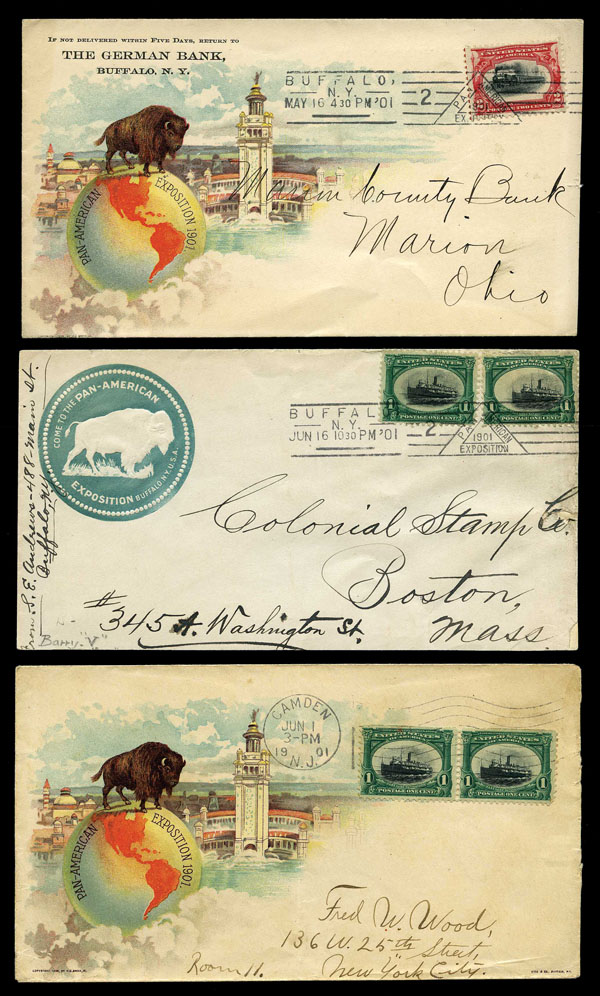 IF NOT DELIVERED WITHIN FIVE DAYS, RETURN TO
THE GERMAN BANK,
BUFFALO, N. Y.
BUFFALO,
N.Y.
MAY 16 4 30 PM '01
2
UNITED STATES
OF AMERICA
2
POSTAGE TWO CENTS
2
PAN-AMERICAN EXPOSITION 1901.
Marion County Bank
Marion
Ohio
COME TO THE PAN-AMERICAN
EXPOSITION BUFFALO, N.Y. U.S.A.
From S. E. Andrews - 488 - Main St.
Buffalo, N.Y.
BUFFALO
N.Y.
JUN 16 10 30 PM '01
2
PAN-AMERICAN
1901
EXPOSITION
UNITED STATES
OF AMERICA
1
POSTAGE ONE CENT
1
UNITED STATES
OF AMERICA
1
POSTAGE ONE CENT
1
Colonial Stamp Co.
Boston,
#345 A. Washington St. Mass.
Barry "V"
PAN-AMERICAN EXPOSITION 1901.
CAMDEN
JUN 1
3-PM
19 01
N.J.
UNITED STATES
OF AMERICA
1
POSTAGE ONE CENT
1
UNITED STATES
OF AMERICA
1
POSTAGE ONE CENT
1
Fred W. Wood,
136 W. 25th Street,
Room 11. New York City.